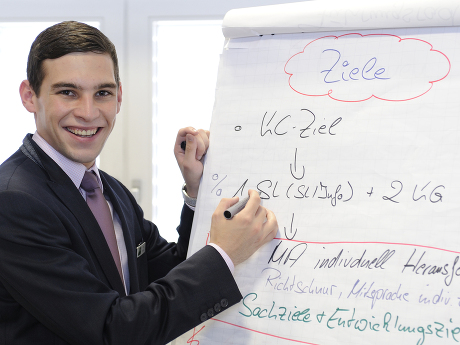 Ziele
• KC-Ziel
% 1 SL (SL Info) + 2 KG
MA individuell Herausf
Richtschnur, Mitsprache indiv. Z
Sachziele + Entwicklungszie